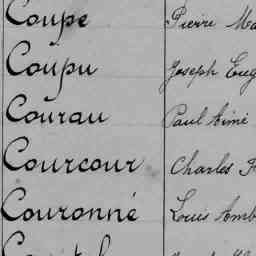 Coupe Pierre
Coupu Joseph
Courau Paul Aimé
Courcour Charles
Couronné Louis